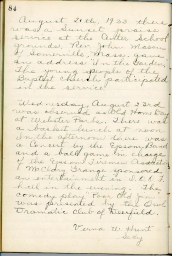 84
August 20th, 1933 there
was a Sunset praise
service at the Adler School
grounds. Rev. John Mason
of Somerville, Mass. gave
an address in the Garden.
The young people of the
Baptist church participated
in the service.
Wednesday, August 23rd
was observed as Old Home Day
at Webster Park. There was
a basket lunch at noon
in the afternoon there was
a Concert by the Epsom Band
and a ball game in charge
of the Epsom Firemen's Assoc.
McClary Grange sponsored
an entertainment in I.O.O.F.
hall in the evening. The
comedy play
was presented by the Owl
Dramatic Club of Deerfield.
Verna W. Hunt
Secy